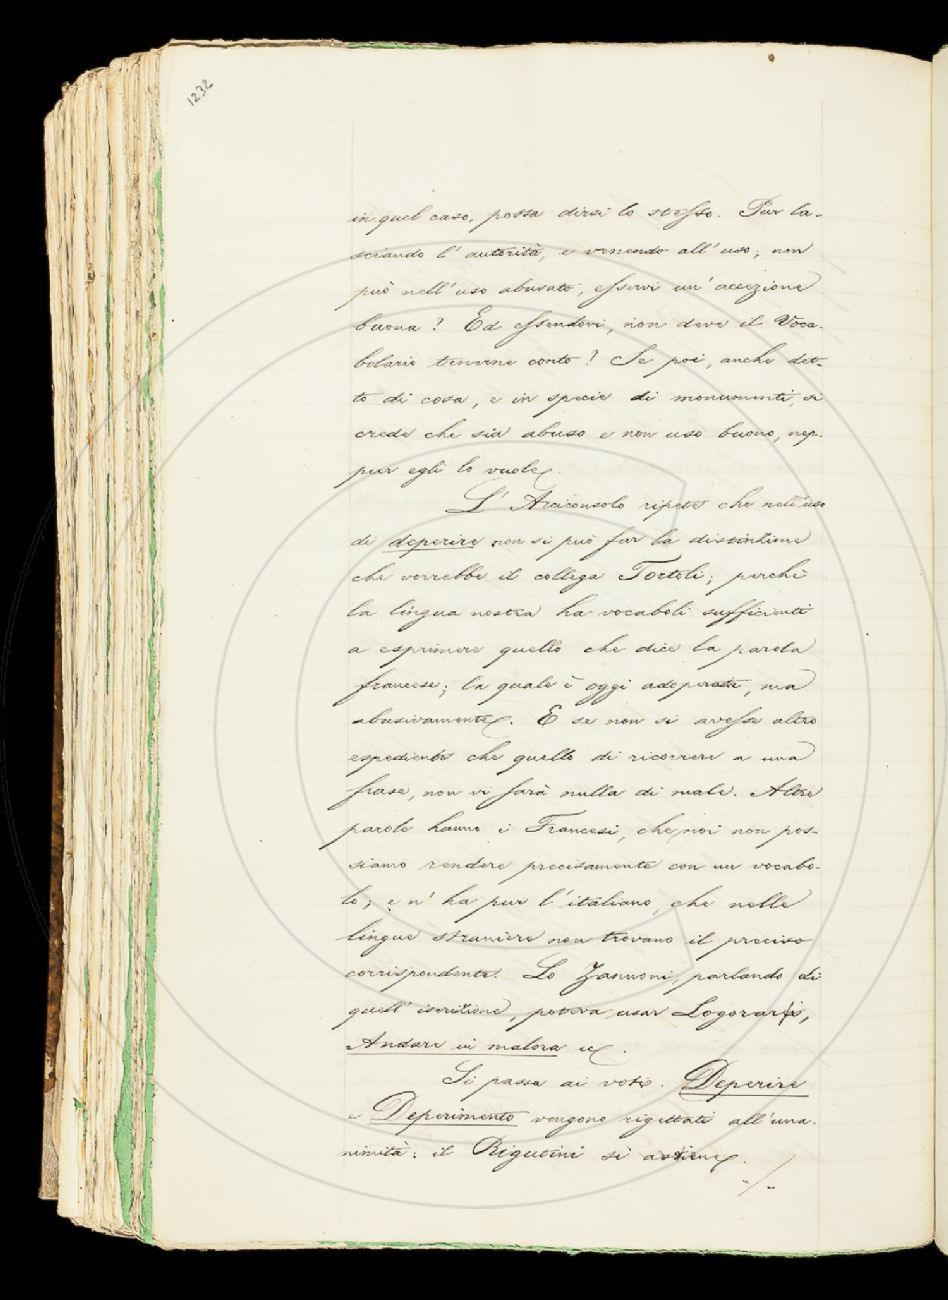 1232
in quel caso, possa dirsi lo stesso. Pur la-
sciando l'autorità, e venendo all'uso; non
può nell'uso abusato, esservi un'accezione
buona? Ed essendovi, non deve il Voca-
bolario tenerne conto? Se poi, anche det-
to di cosa, e in specie di monumenti, si
crede che sia abuso e non uso buono, nep-
pur egli lo vuole.
L'Arciconsolo ripete che nell'uso
di deperire non si può far la distinzione
che vorrebbe il collega Tortoli; perchè
la lingua nostra ha vocaboli sufficienti
a esprimere quello che dice la parola
francese; la quale è oggi adoperata, ma
abusivamente. E se non si avesse altro
espediente che quello di ricorrere a una
frase, non vi sarà nulla di male. Altre
parole hanno i Francesi, che noi non pos-
siamo rendere precisamente con un vocabo-
lo; e n'ha pur l'italiano, che nelle
lingue straniere non trovano il preciso
corrispondente. Lo Zannoni, parlando di
quell'iscrizione, poteva usar Logorarsi,
Andare in malora ec.
Si passa ai voti. Deperire
e Deperimento vengono rigettati all'una-
nimità: il Rigutini si astiene.
./.